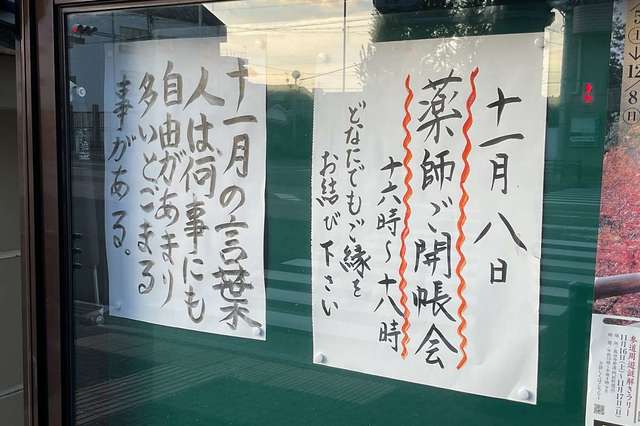 十一月八日
薬師ご開帳会
十六時～十八時
どなたでもご縁を
お結び下さい
十一月の言葉
人は何事にも
自由があまり
多いとこまる
事がある。
12/8(日)
参道周遊謎解きラリー
11月16日(土)～11月17日(日)